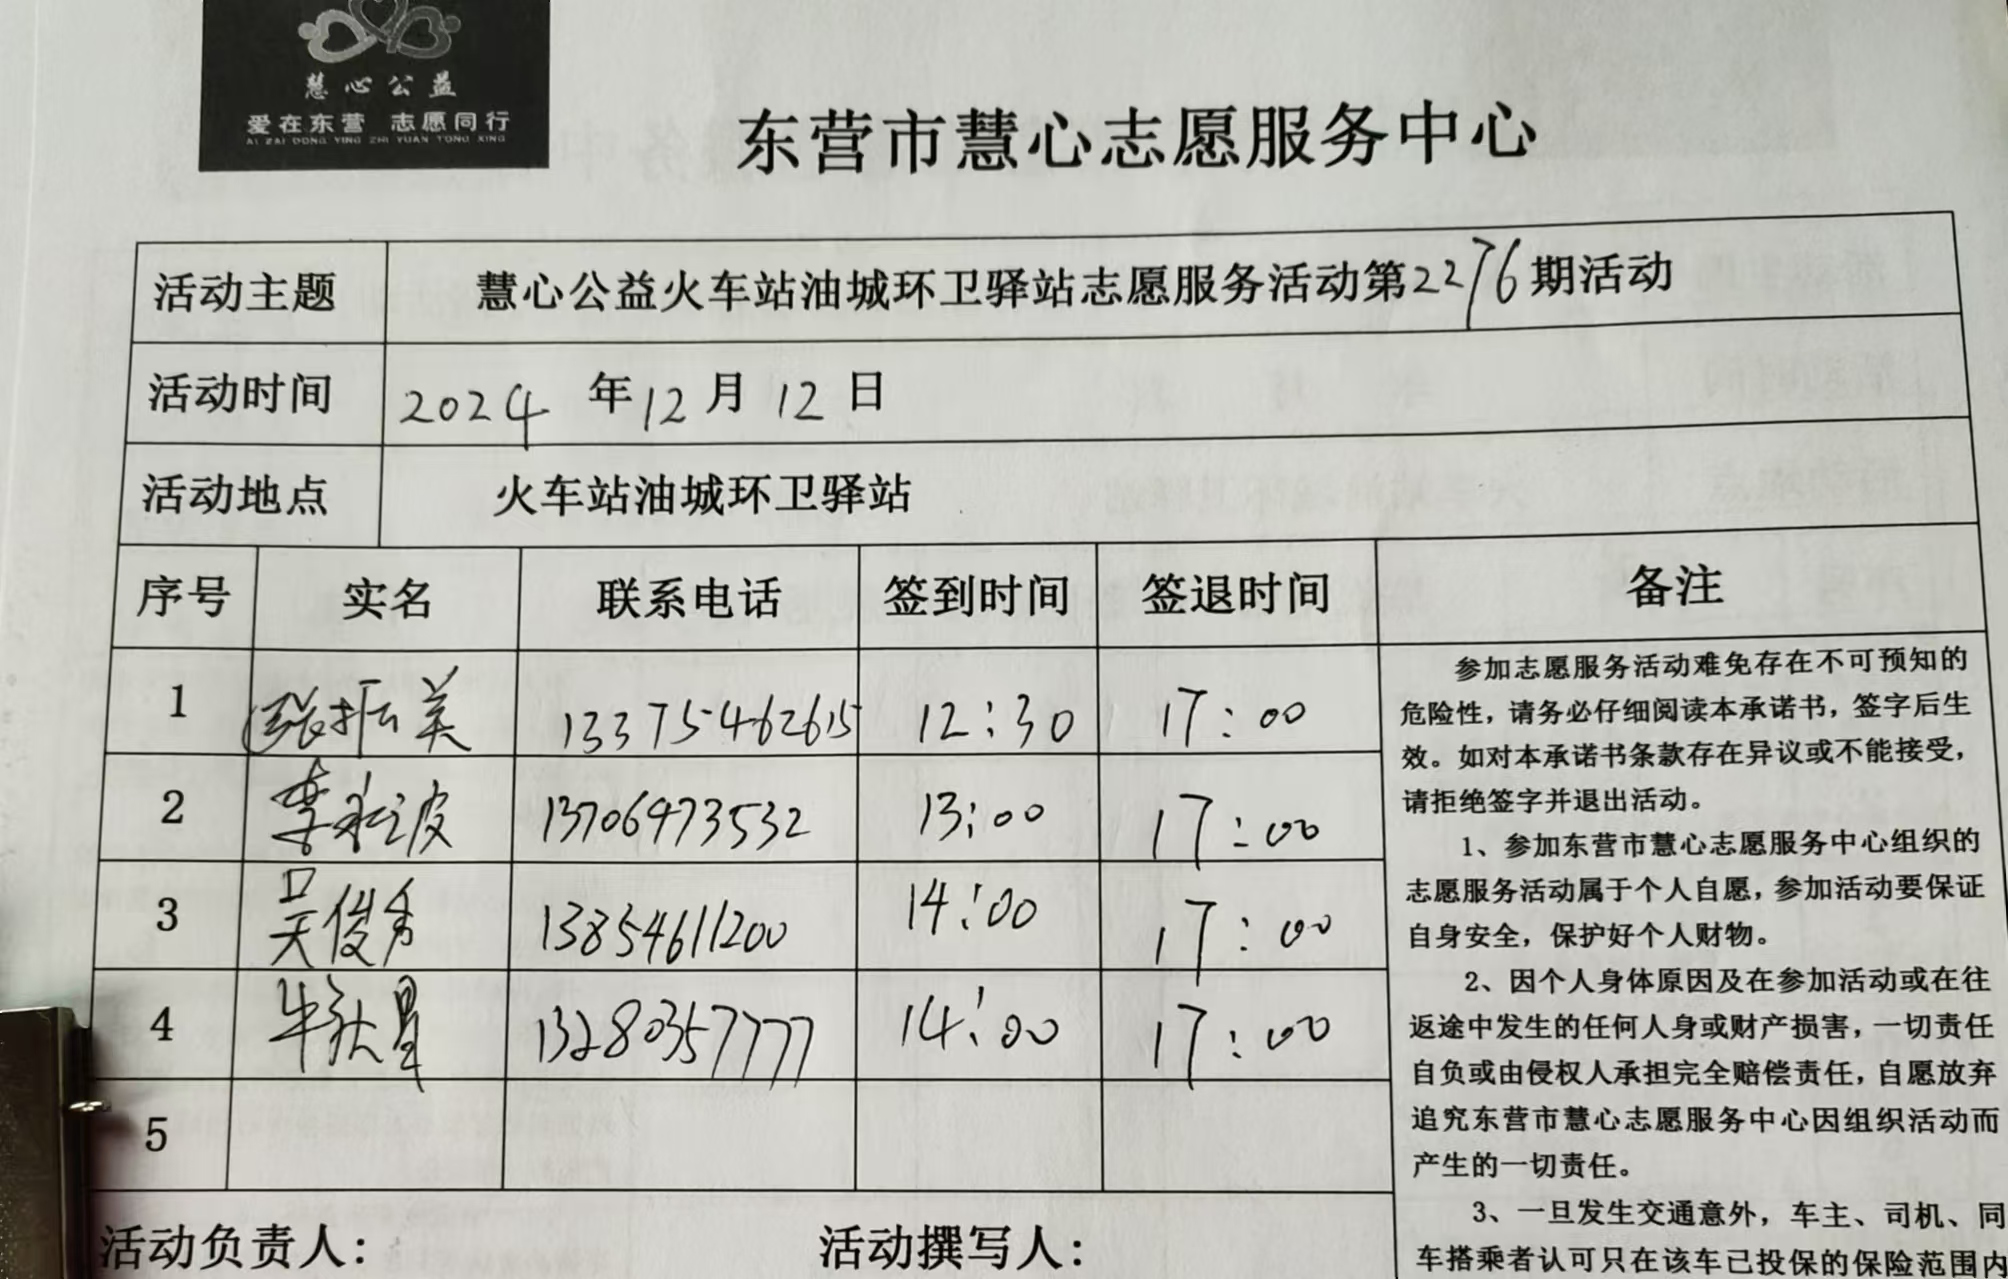 慧心公益
爱在东营 志愿同行
AI ZAI DONG YING ZHI YUAN TONG XING
东营市慧心志愿服务中心
活动主题 慧心公益火车站油城环卫驿站志愿服务活动第2276期活动
活动时间 2024 年 12 月 12 日
活动地点 火车站油城环卫驿站
序号 实名 联系电话 签到时间 签退时间 备注
1 张振美 13375462615 12:30 17:00
2 李 波 13706473532 13:00 17:00
3 吴俊秀 13854611200 14:00 17:00
4 牛 星 13280357777 14:00 17:00
5
参加志愿服务活动难免存在不可预知的
危险性，请务必仔细阅读本承诺书，签字后生
效。如对本承诺书条款存在异议或不能接受，
请拒绝签字并退出活动。
1、参加东营市慧心志愿服务中心组织的
志愿服务活动属于个人自愿，参加活动要保证
自身安全，保护好个人财物。
2、因个人身体原因及在参加活动或在往
返途中发生的任何人身或财产损害，一切责任
自负或由侵权人承担完全赔偿责任，自愿放弃
追究东营市慧心志愿服务中心因组织活动而
产生的一切责任。
3、一旦发生交通意外，车主、司机、同
车搭乘者认可只在该车已投保的保险范围内
活动负责人： 活动撰写人：